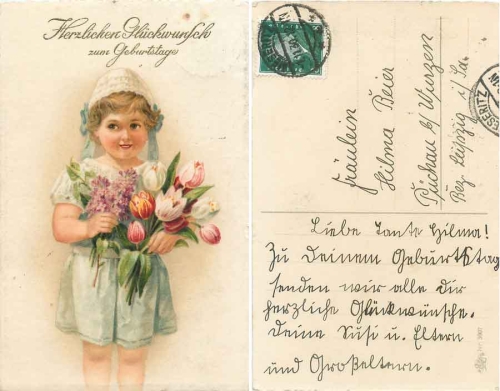 Herzlichen Glückwunsch
zum Geburtstage
Fräulein
Hilma Beier
Püchau b/ Wurzen
Bez. Leipzig i/ Sa.
Liebe Tante Hilma!
Zu Deinem Geburtstag
senden wir alle dir
herzliche Glückwünsche.
Deine Susi u. Eltern
und Großeltern.